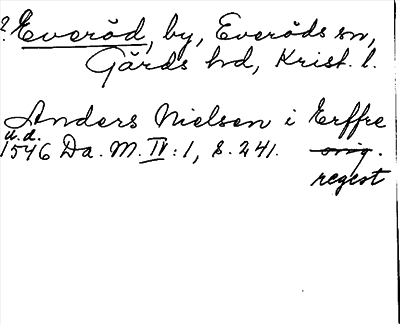 ? Everöd, by, Everöds sn,
Gärds hd, Krist. l.
Anders Nielsen i Erffre
u.d.
1546 Da. M. IV: 1, S. 241. orig.
regest